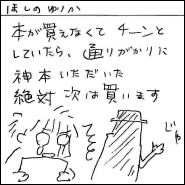 ほしの ゆりか
本が買えなくて チーンと
していたら、通りがかりに
神本いただいた
絶対 次は買います
じゃ